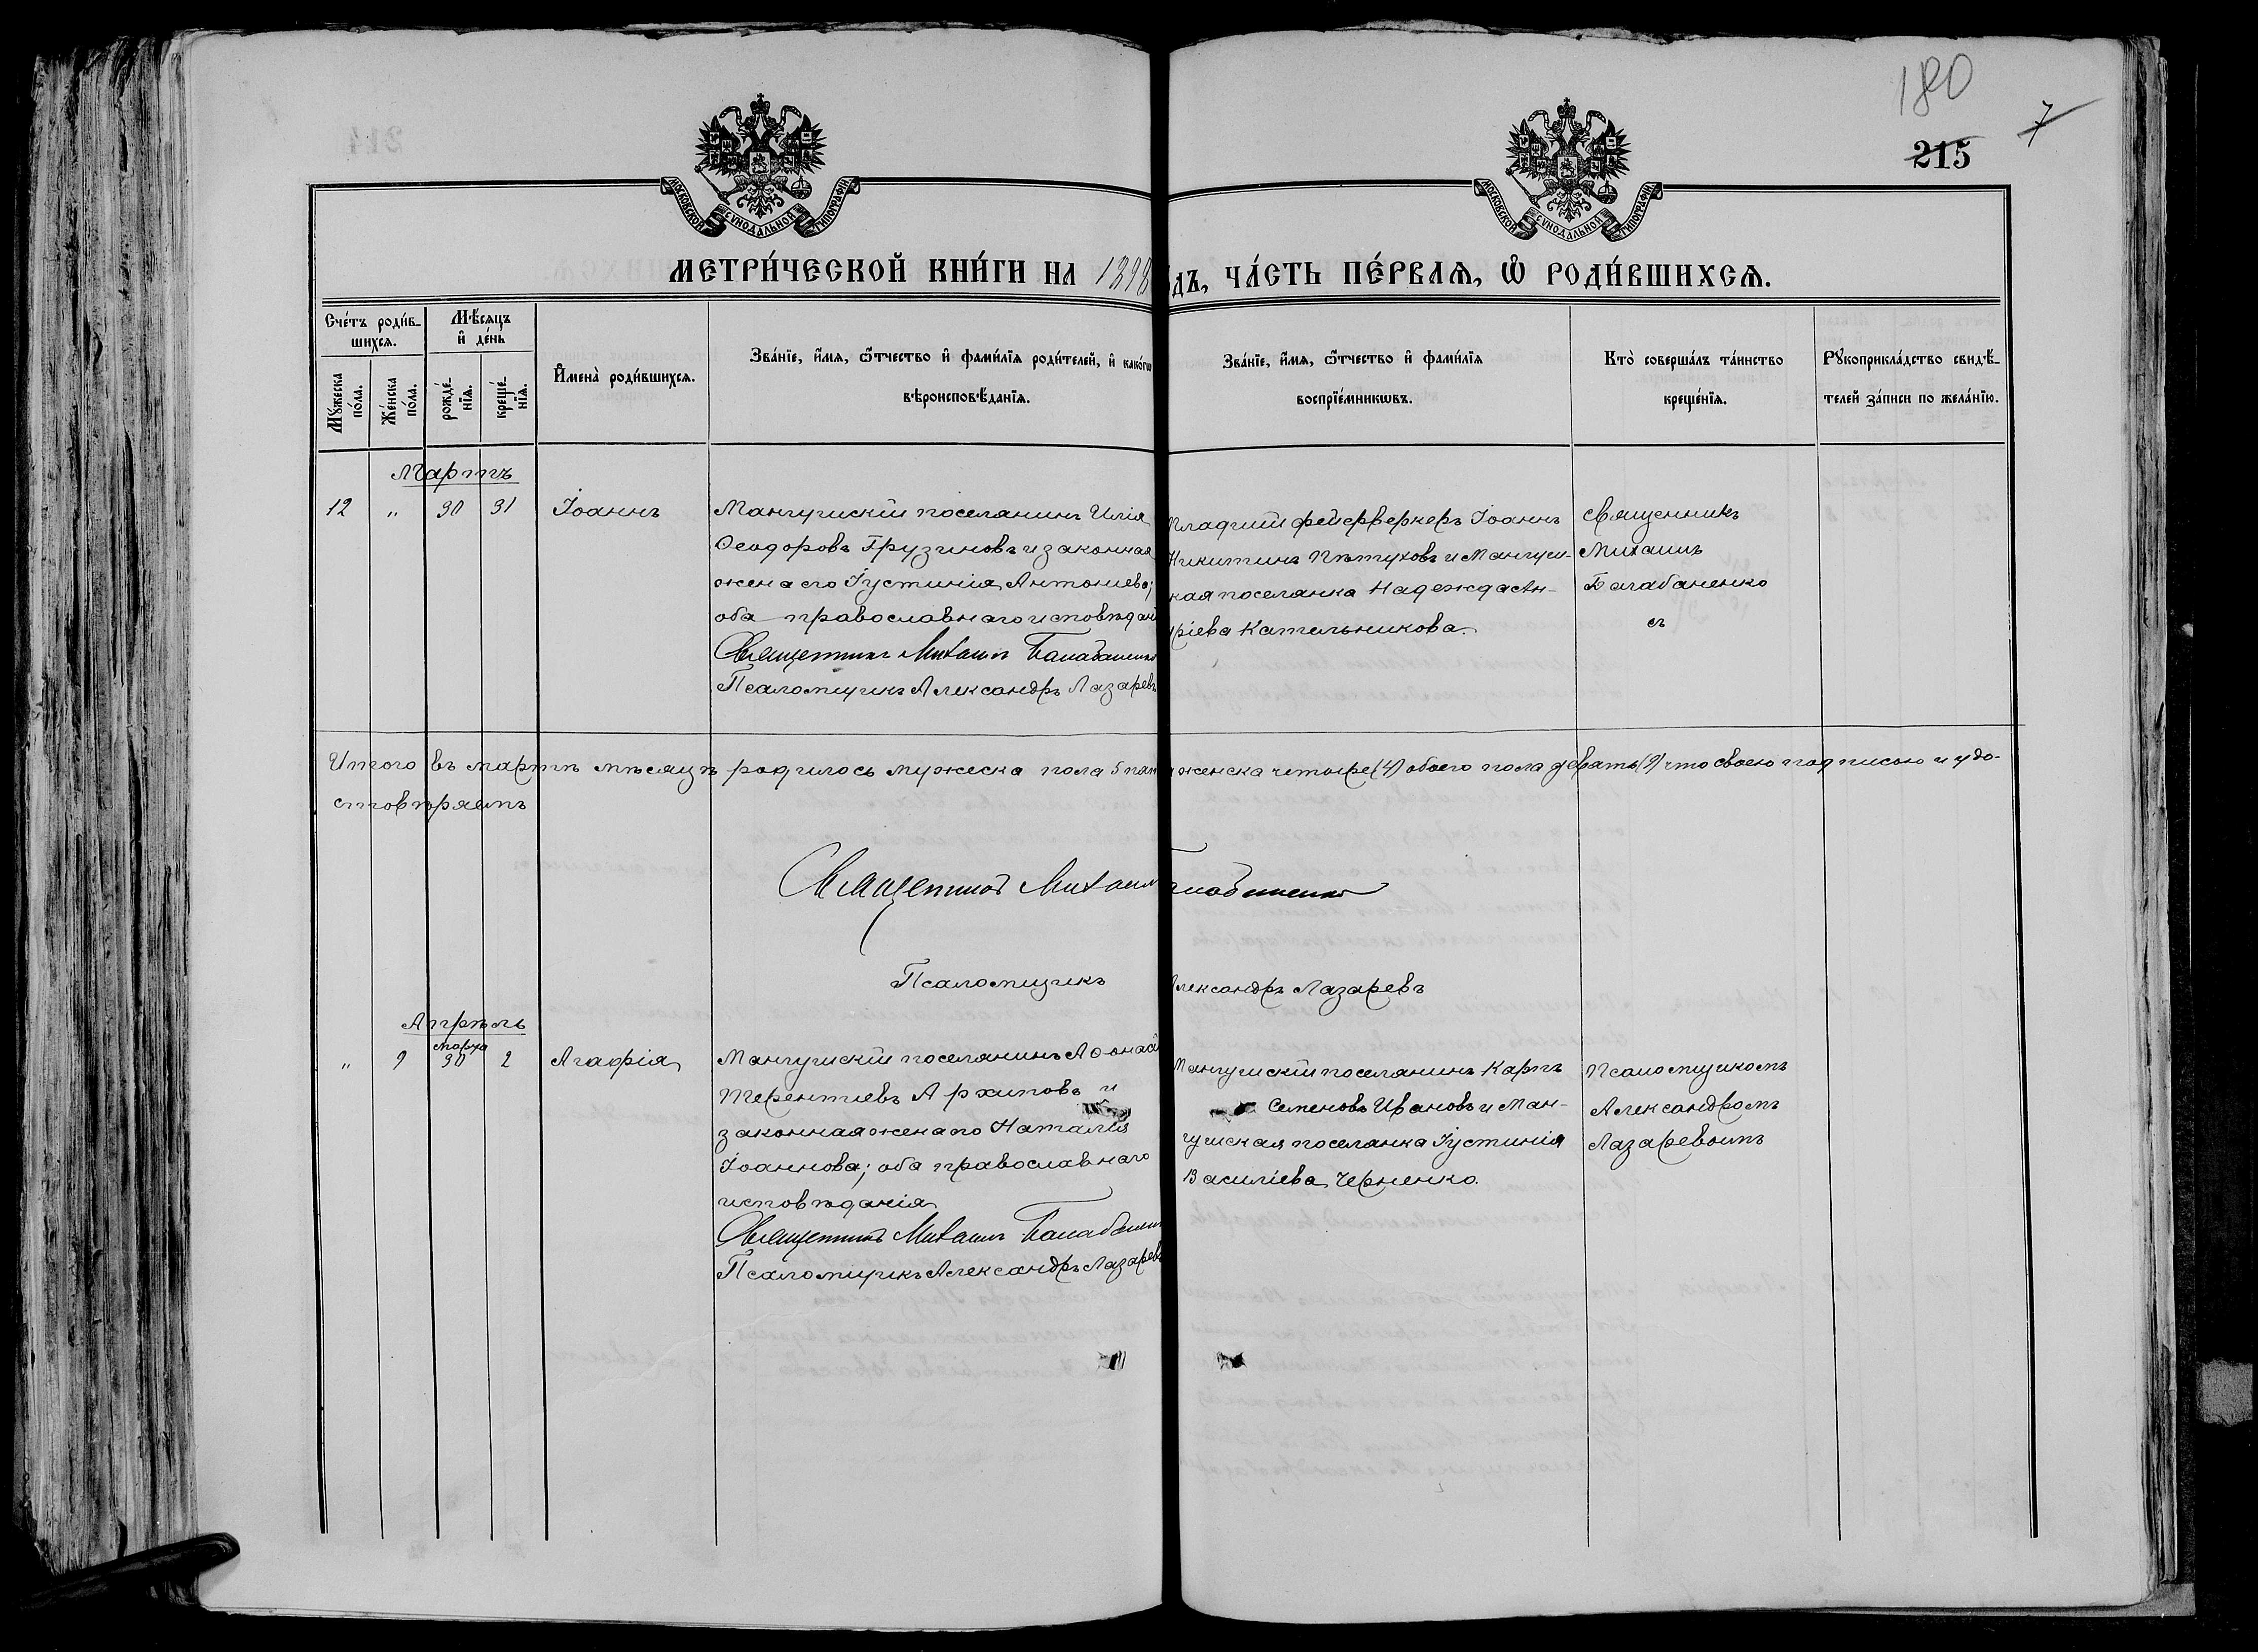 180
7
215
МОСКОВСКОЙ СѴНОДАЛЬНОЙ ТИПОГРАФІИ
МОСКОВСКОЙ СѴНОДАЛЬНОЙ ТИПОГРАФІИ
МЕТРИ́ЧЕСКОЙ КНИ́ГИ НА 1898
ДЪ, ЧА́СТЬ ПЕ́РВАѦ, Ѡ҆ РОДИ́ВШИХСѦ.
Сче́тъ роди́в-
шихсѧ.
Мꙋ́жеска по́ла.
Же́нска по́ла.
Мѣ́сѧцъ
и҆ де́нь
рожде́-
нїѧ.
креще́-
нїѧ.
И҆мена̀ роди́вшихсѧ.
Зва́нїе, и҆́мѧ, ѻ҆́тчество и҆ фами́лїѧ роди́телей, и҆ како́гѡ
вѣроисповѣ́данїѧ.
Зва́нїе, и҆́мѧ, ѻ҆́тчество и҆ фами́лїѧ
воспрїе́мникѡвъ.
Кто̀ соверша́лъ та́инство
креще́нїѧ.
Рꙋкоприкла́дство свидѣ́-
телей за́писи по жела́нїю.
Мартъ
12 " 30 31 Іоаннъ
Мангушскій поселянинъ Илія
Ѳеодоровъ Грузиновъ и законная
жена его Іустинія Антониева;
оба православнаго исповѣдані
Священникъ Михаилъ Балабаненко
Псаломщикъ Александръ Лазаревъ
Младшій фейерверкеръ Іоаннъ
Никитинъ Пѣтуховъ и Мангуш-
кая поселянка Надежда Ан-
дріева Кательникова.
Священникъ
Михаилъ
Балабаненко
съ
Итого въ мартѣ мѣсяцѣ родилось мужеска пола 5 пять женска четыре (4) обоего пола девять (9) что своею подписью и удо-
стовѣряемъ
Священникъ Михаилъ Балабаненко
Псаломщикъ Александръ Лазаревъ
Апрѣль
марта
" 9 30 2 Агафія
Мангушскій поселянинъ Аѳонасій
Терентиевъ Архиповъ и
законная жена его Наталія
Іоаннова; оба православнаго
исповѣданія
Священникъ Михаилъ Балабаненко
Псаломщикъ Александръ Лазаревъ
Мангушскій поселянинъ Карпъ
Семеновъ Ивановъ и Ман-
гушская поселянка Іустинія
Василіева Черненко.
Псаломщикомъ
Александромъ
Лазаревымъ